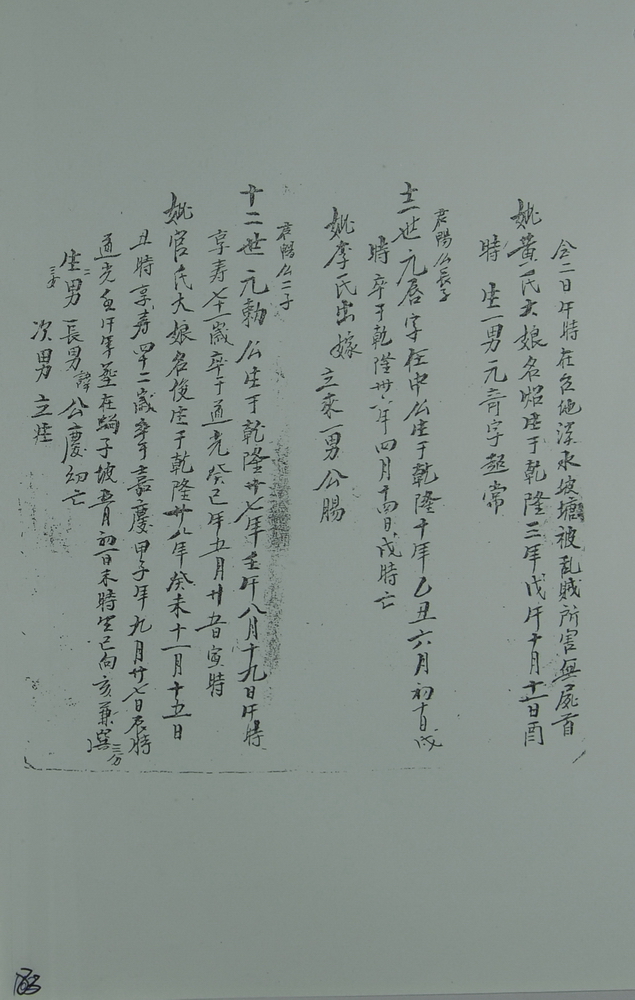 廿二日午時在台地深水坡塘被乱賊所害無屍首
妣黃氏大娘名炤生于乾隆三年戊午十月十一日酉
時 生一男元奇字超常
君暢公長子
十二世元唇字任中公生于乾隆十年乙丑六月初十日戌
時卒于乾隆卅六年四月十四日戌時亡
妣李氏出嫁 立來一男公腸
君暢公二子
十二世元勅公生于乾隆廿七年壬午八月十九日午時
享寿七十一歲卒于道光癸巳年五月廿五日寅時
妣官氏大娘名俊生于乾隆廿八年癸未十一月十五日
丑時享寿四十二歲卒于嘉慶甲子年九月廿七日辰時
道光年葬在蝎子坡五月初一日未時坐巳向亥兼巽三分
生二男 長男諱公慶幼亡
三女
次男立